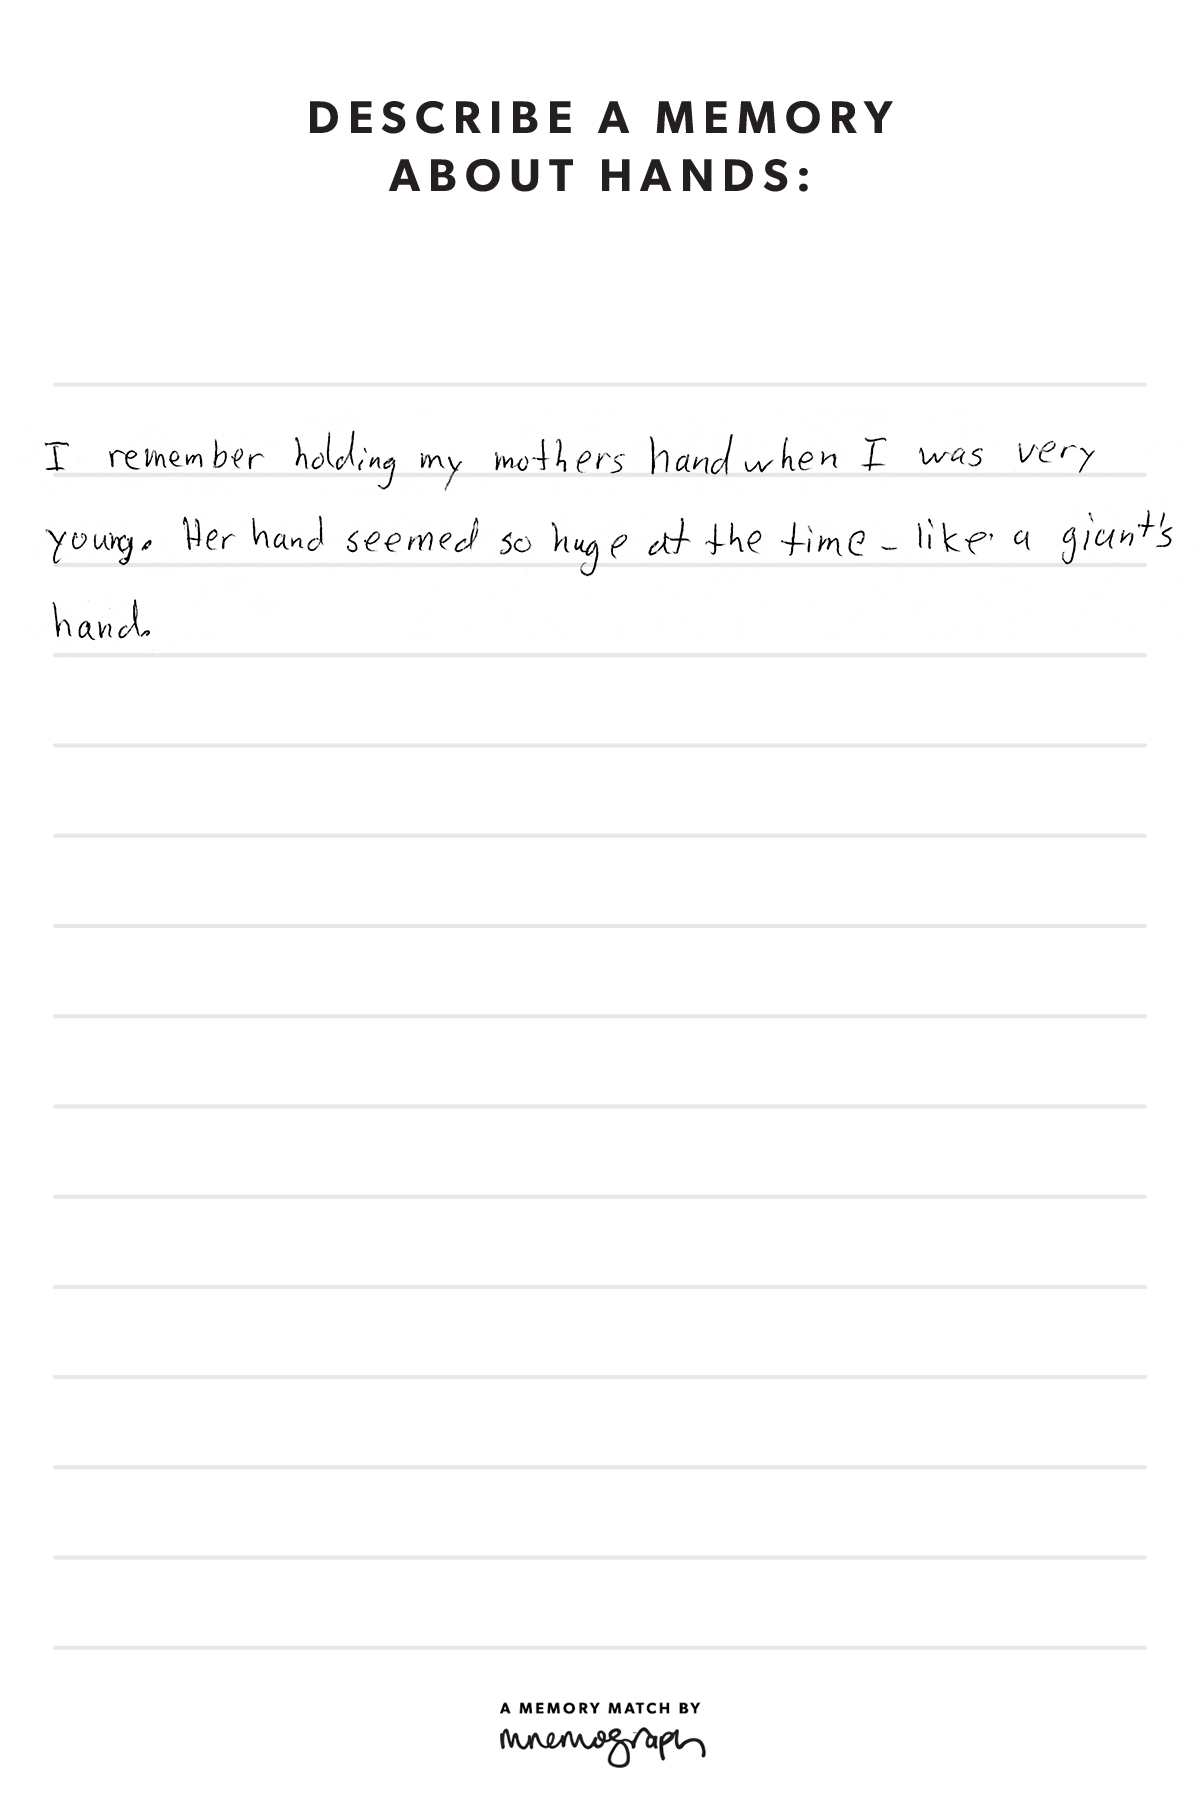 DESCRIBE A MEMORY
ABOUT HANDS:
I remember holding my mothers hand when I was very
young. Her hand seemed so huge at the time - like a giant's
hand.
A MEMORY MATCH BY
mnemograph